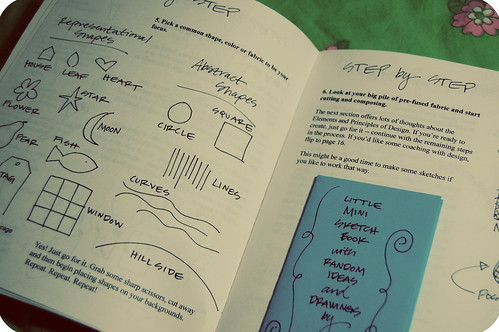 STEP
5. Pick a common shape, color or fabric to be your
focus.
Representational
Shapes
HOUSE
LEAF
HEART
Abstract
Shapes
FLOWER
STAR
MOON
CIRCLE
SQUARE
PEAR
FISH
LINES
TAG
WINDOW
CURVES
HILLSIDE
Yes! Just go for it. Grab some sharp scissors, cut away
and then begin placing shapes on your backgrounds.
Repeat. Repeat. Repeat!
STEP by STEP
6. Look at your big pile of pre-fused fabric and start
cutting and composing.
The next section offers lots of thoughts about the
Elements and Principles of Design. If you're ready to
create, just go for it — continue with the remaining steps
in the process. If you'd like some coaching with design,
flip to page 16.
This might be a good time to make some sketches if
you like to work that way.
LITTLE
MINI
SKETCH
BOOK
with
RANDOM
IDEAS
and
DRAWINGS
by